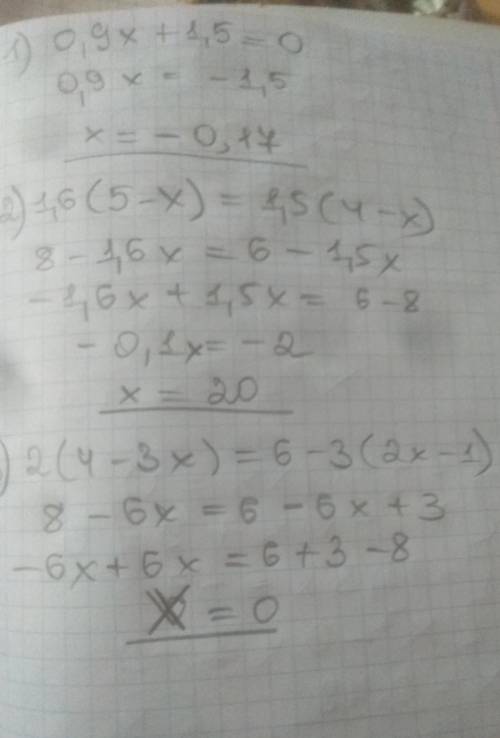 1) 0,9x + 1,5 = 0
0,9x = -1,5
x = -0,17
2) 1,6(5-x) = 1,5(4-x)
8 - 1,6x = 6 - 1,5x
-1,6x + 1,5x = 6-8
-0,1x = -2
x = 20
) 2(4-3x) = 6-3(2x-1)
8 - 6x = 6 - 6x + 3
-6x + 6x = 6+3-8
= 0